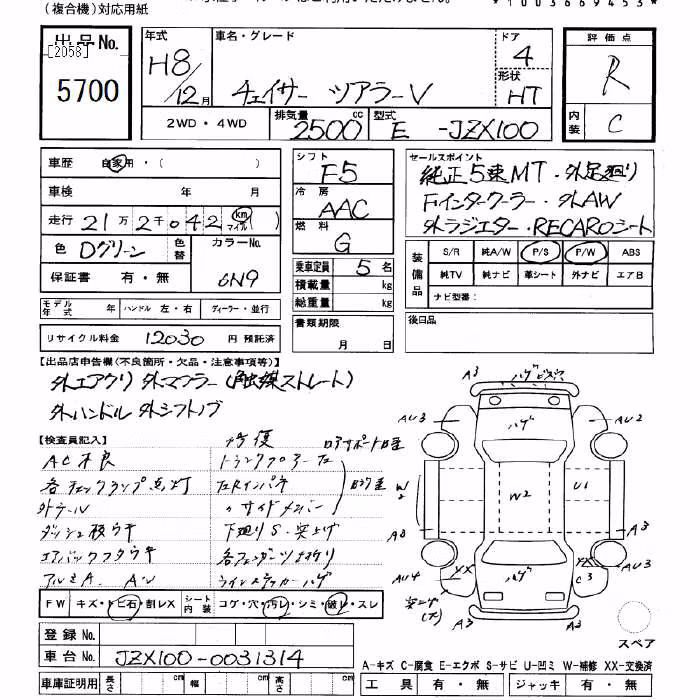 (複合機)対応用紙
*1003669453*
出品No.
[2058]
5700
年式 H8/12月
車名・グレード チェイサー ツアラーV
ドア 4
形状 HT
2WD・4WD
排気量 2500cc
型式 E -JZX100
評価点 R
内装 C
車歴 自家用・( )
車検 年 月
走行 21万2千042 km マイル
色 Dグリーン 色替 カラーNo. 6N9
保証書 有・無
シフト F5
冷房 AAC
燃料 G
乗車定員 5名
積載量 kg
総重量 kg
セールスポイント
純正5速MT・外足廻り
Fインタークーラー・外AW
外ラジエター・RECAROシート
装備品 S/R 純A/W P/S P/W ABS
純TV 純ナビ 革シート 外ナビ エアB
ナビ型番:
モデル年式 年 ハンドル 左・右 ディーラー・並行
リサイクル料金 12030 円 預託済
書類期限
月 日
後日品
【出品店申告欄(不良箇所・欠品・注意事項等)】
外エアクリ 外マフラー(触媒ストレート)
外ハンドル 外シフトノブ
【検査員記入】
修復
AC不良
各チェックランプ点灯
外テール
下廻りS・突上げ
アルミA. AW
F W キズ・トビ石・割レX シート内装 コゲ・穴・汚レ・シミ・破レ・スレ
登録No.
車台No. JZX100-0031314
車庫証明用 長さ cm 幅 cm 高さ cm
A3 ハゲ
AU3 ハゲ AU2
W2 W2 U1
A3 A3
AU4 XX ハゲ XX C3 A3
A3 A3
スペア
A-キズ C-腐食 E-エクボ S-サビ U-凹ミ W-補修 XX-交換済
工具 有・無 ジャッキ 有・無